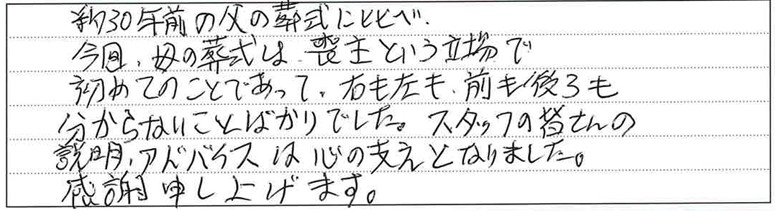 約30年前の父の葬式にヒヒべ、
今回、母の葬式は、喪主という立場で
初めてのことであって、右も左も、前も後ろも
分からないことばかりでした。スタッフの皆さんの
説明、アドバイスは心の支えとなりました。
感謝申し上げます。